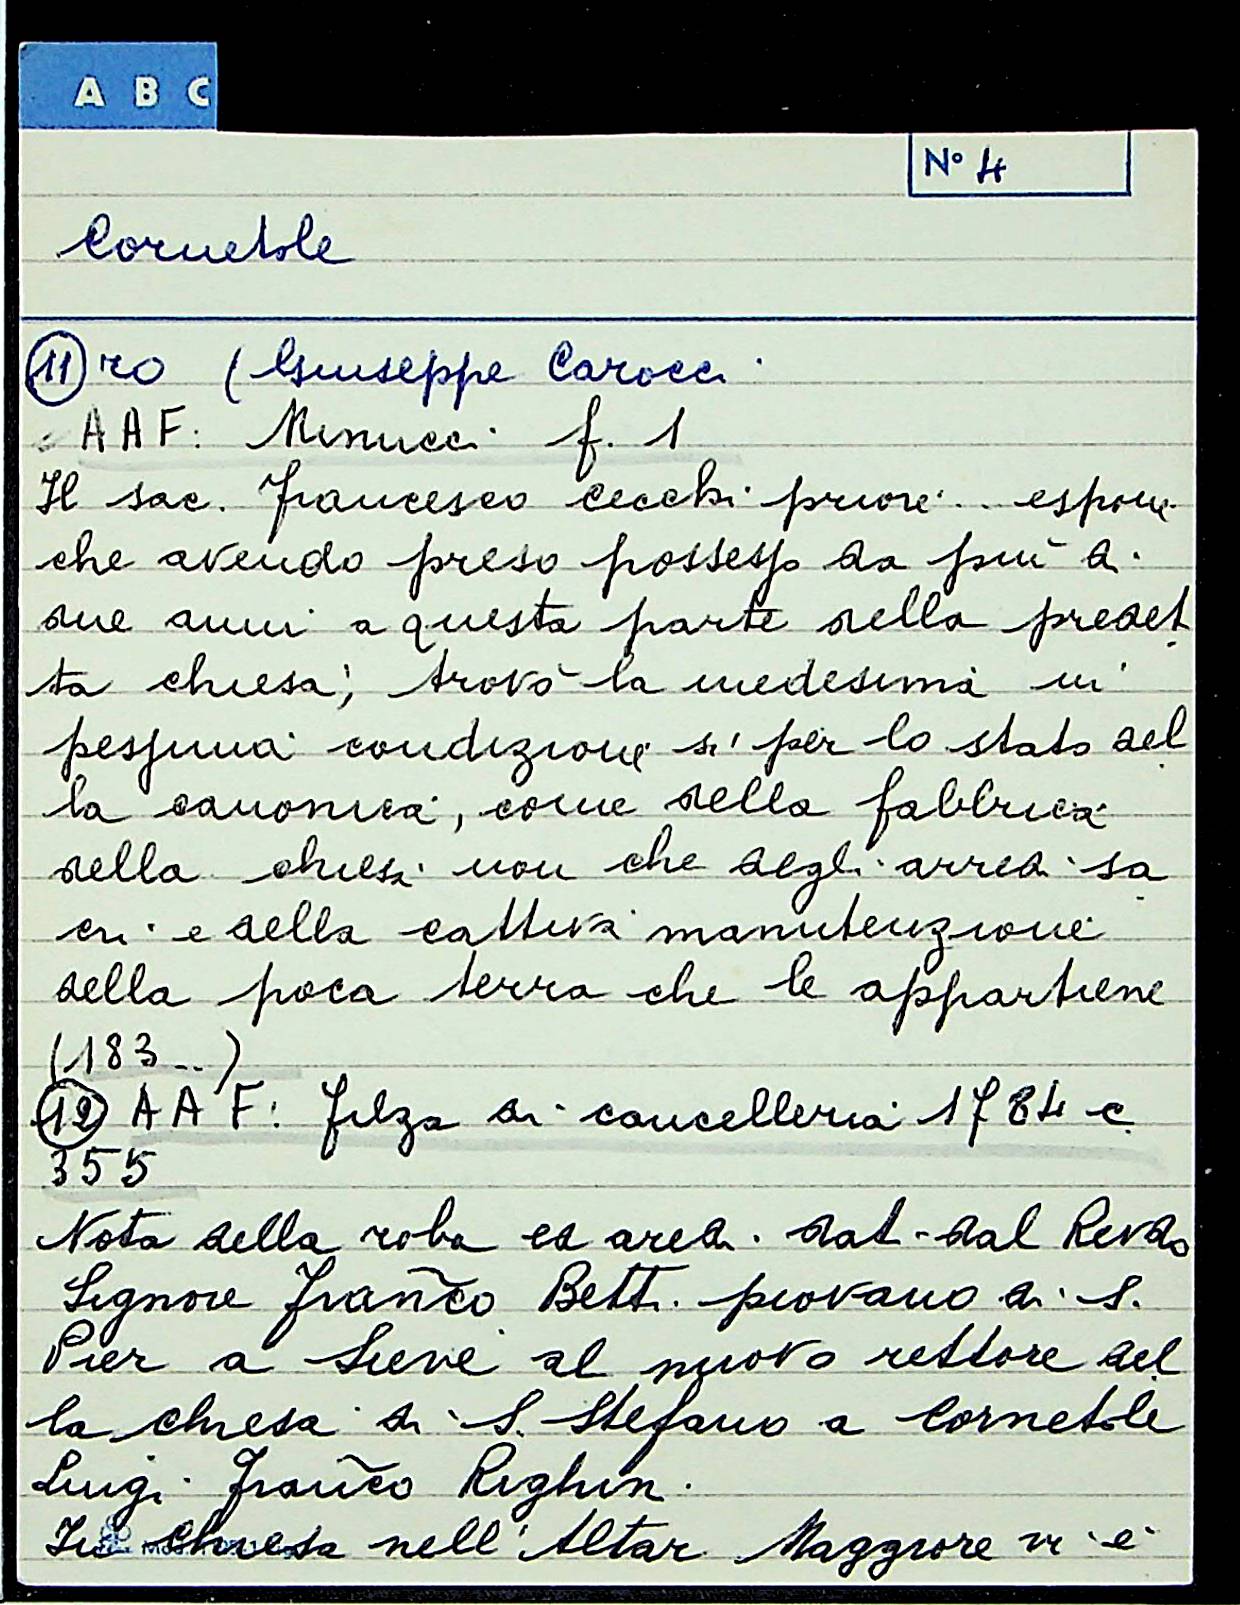 A B C
N° 4
Cornetole
11 ro (Giuseppe Carocci
AAF: Minucci f. 1
Il sac. Francesco Cecchi priore .. espone
che avendo preso possesso da più di
due anni a questa parte della predet
ta chiesa, trovò la medesima in
pessima condizione si per lo stato del
la canonica, come della fabbrica
della chiesa non che degli arredi sa
cri e della cattiva manutenzione
della poca terra che le appartiene
(183..)
12 AAF: Filza di cancelleria 1784 c
355
Nota della roba ed aredi dat. dal Revdo
Signore Franco Betti piovano di S.
Pier a Sieve al nuovo rettore del
la chiesa di S. Stefano a Cornetole
Luigi Franco Righini
In chiesa nell'Altar Maggiore vi è